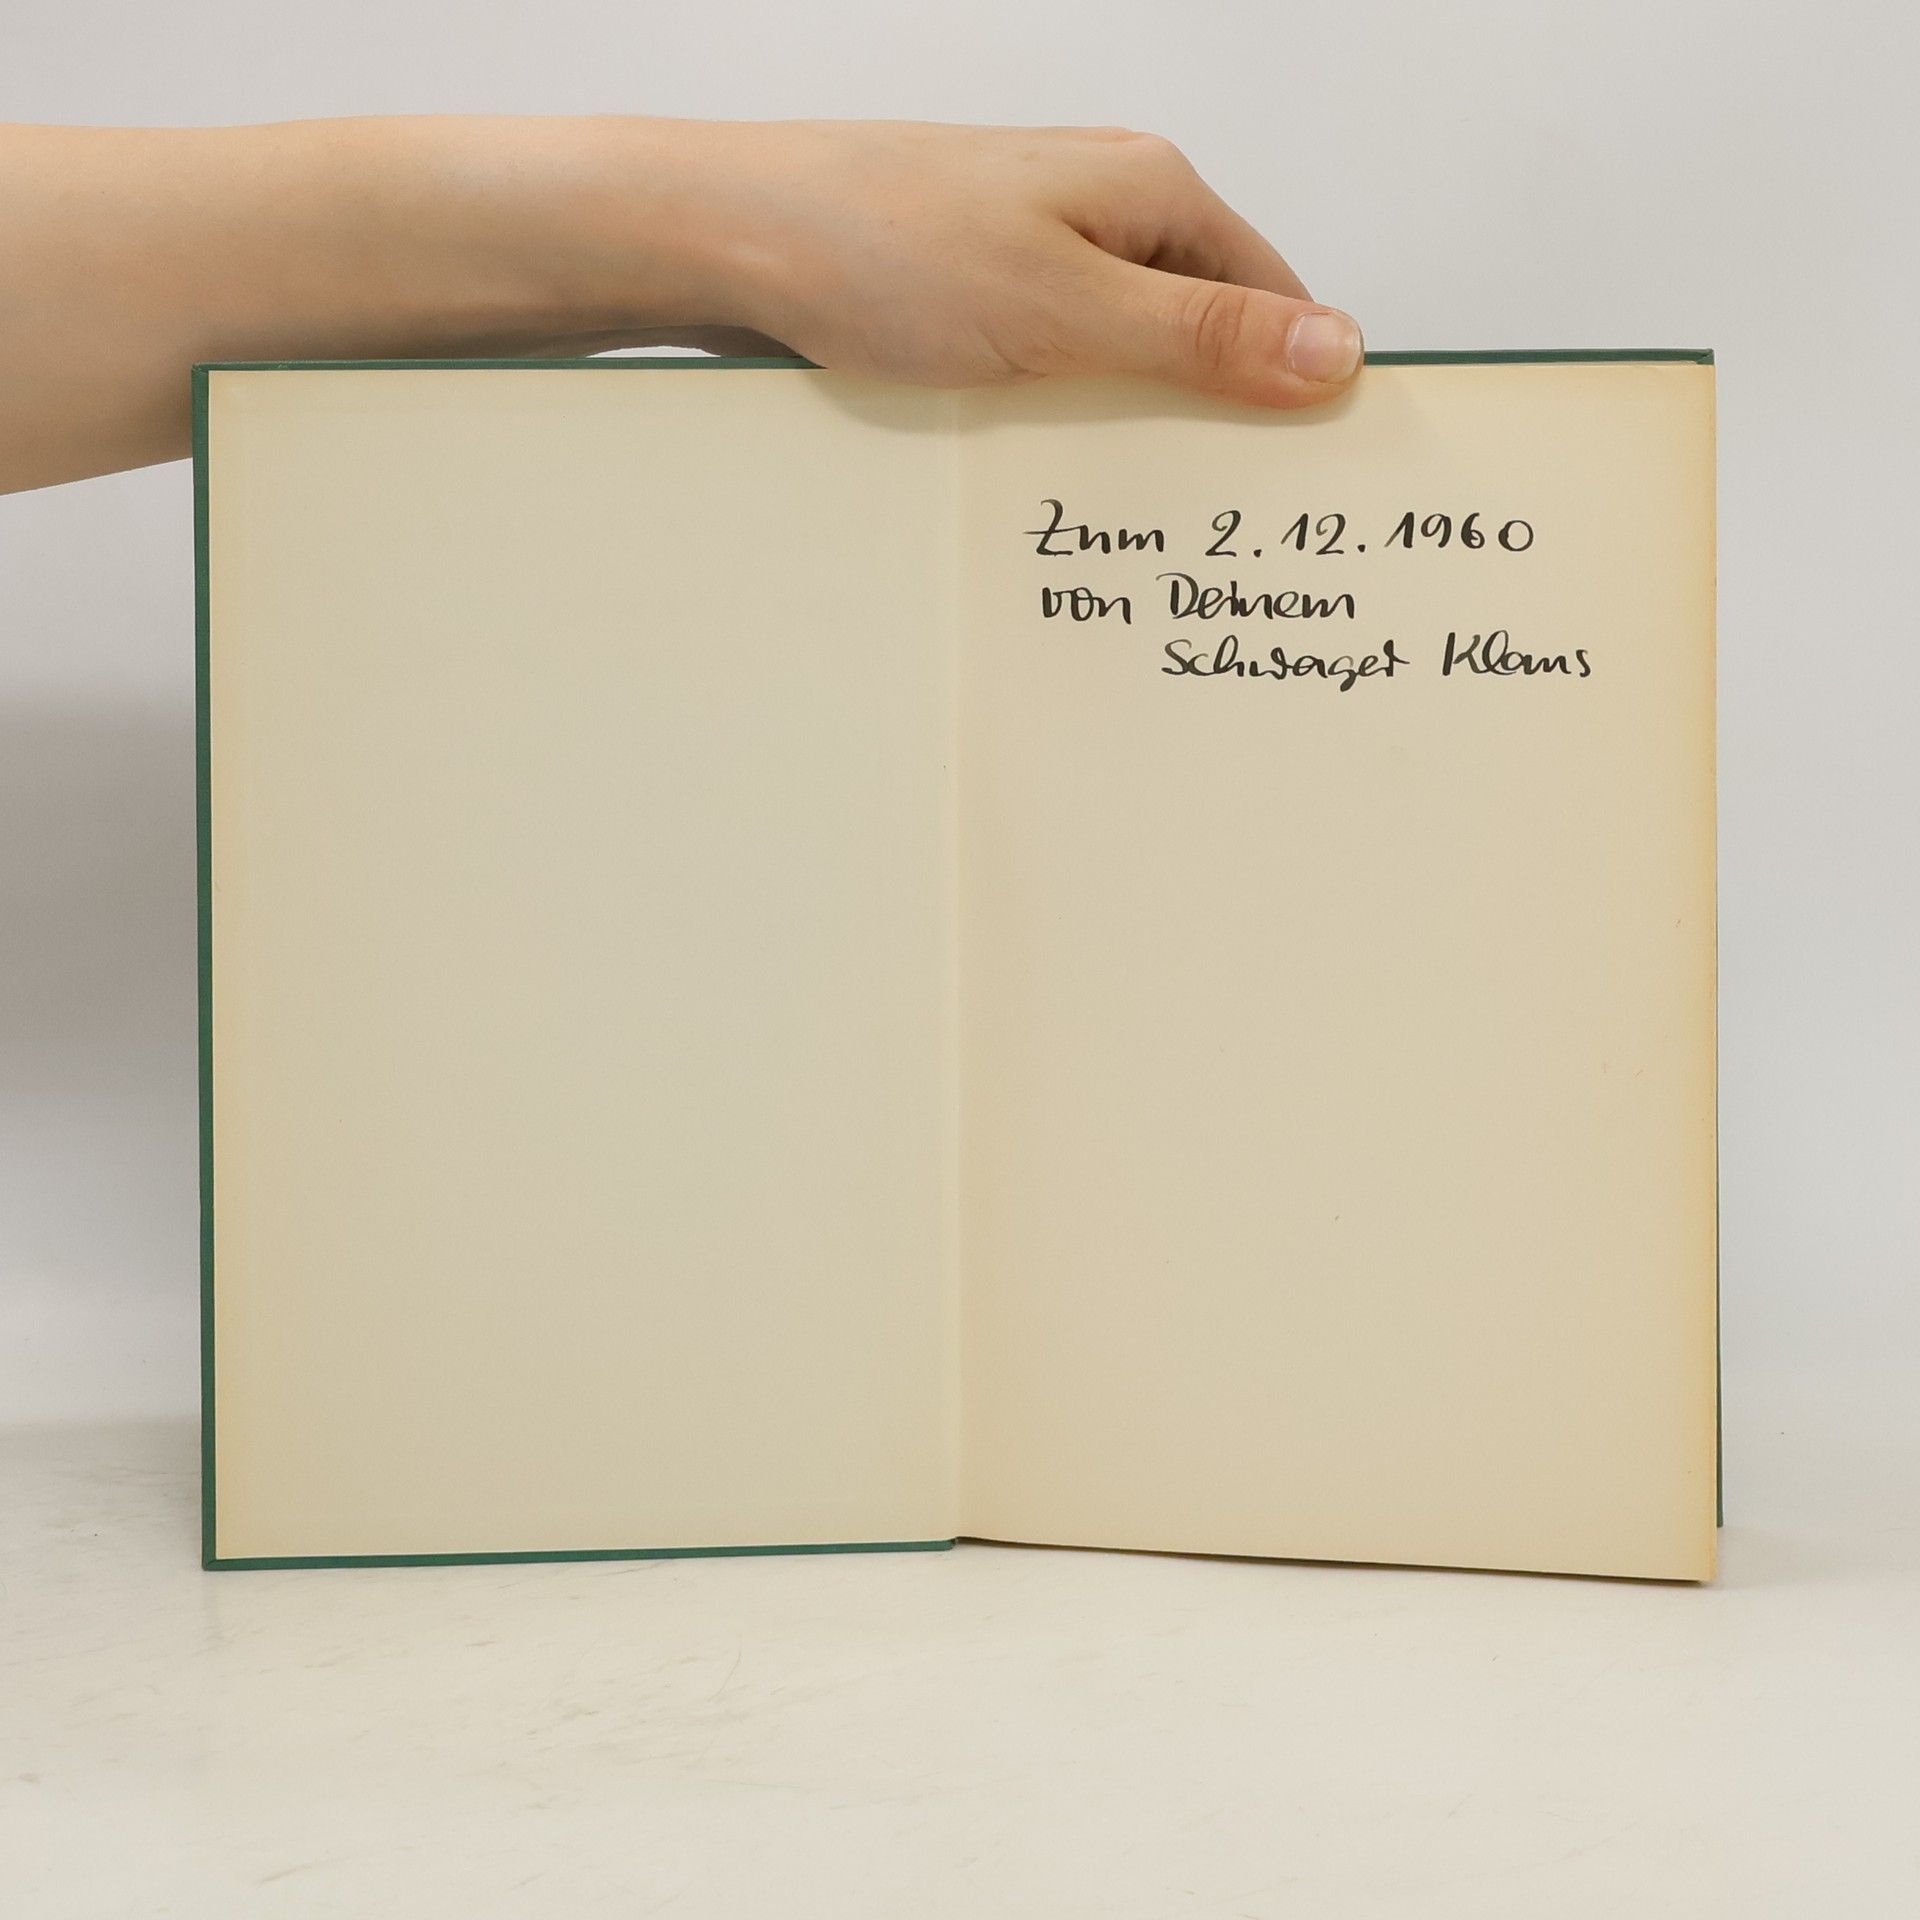 Zum 2.12.1960
von Deinem
Schwager Klaus